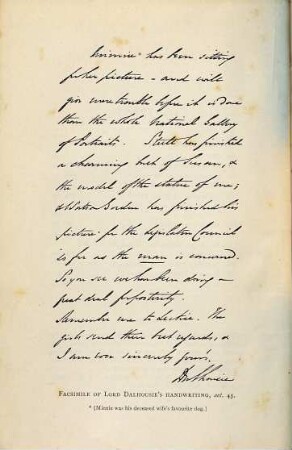 Minnie* has been sitting
for her picture – and will
give more trouble before it is done
than the whole National Gallery
of Portraits. Steell has finished
a charming bust of Susan, &
the model of the statue of me;
& Watson Gordon has finished his
picture for the Legislative Council
so far as the man is concerned.
So you see we have been doing a
great deal for posterity.
Remember me to
The
girls send their best regards, &
I am ever sincerely yours,
Dalhousie
FACSIMILE OF LORD DALHOUSIE'S HANDWRITING, æt. 45.
* [Minnie was his deceased wife's favourite dog.]